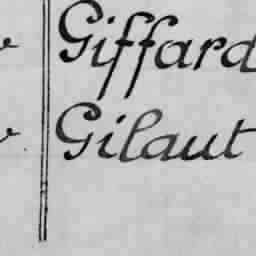 Giffard
Gilaut